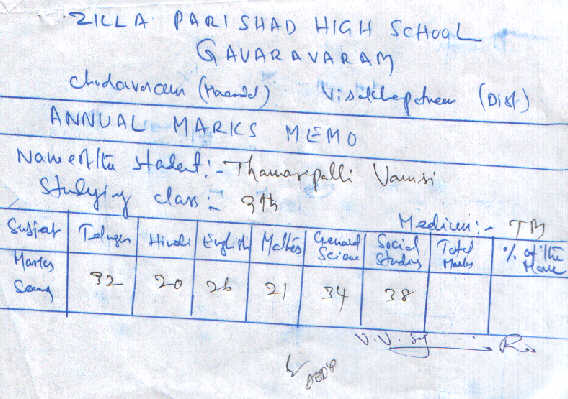 ZILLA PARISHAD HIGH SCHOOL
GAVARAVARAM
Chodavaram (Mandal) Visakhapatnam (Dist)
ANNUAL MARKS MEMO
Name of the student:- Thamarapalli Vamsi
Studying class:- 9th
Medium:- TM
Subject Telugu Hindi English Maths General Science Social Studies Total Marks % of the Marks
Marks 32 20 26 21 34 38